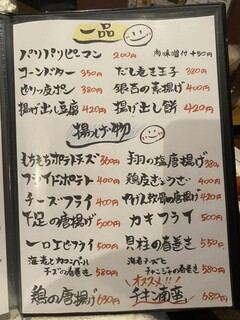 一品
パリパリピーマン 200円 肉味噌付+50円
コーンバター 350円 だし巻き玉子 380円
ピリッ皮ポン 380円 銀杏の素揚げ 400円
揚げ出し豆腐 420円 揚げ出し餅 420円
揚げ物
もちもちポテトチーズ 360円 手羽の塩唐揚げ 380円
フライドポテト 400円 鶏皮ぎょうざ 400円
チーズフライ 400円 軟骨の唐揚げ 420円
下足の唐揚げ 500円 カキフライ 500円
一口エビフライ 500円 貝柱の春巻き 550円
海老とカマンベール
チーズの春巻き 580円
海老チーズと
チャンジャの春巻き 580円
オススメ!!
鶏の唐揚げ 630円 チキン南蛮 680円